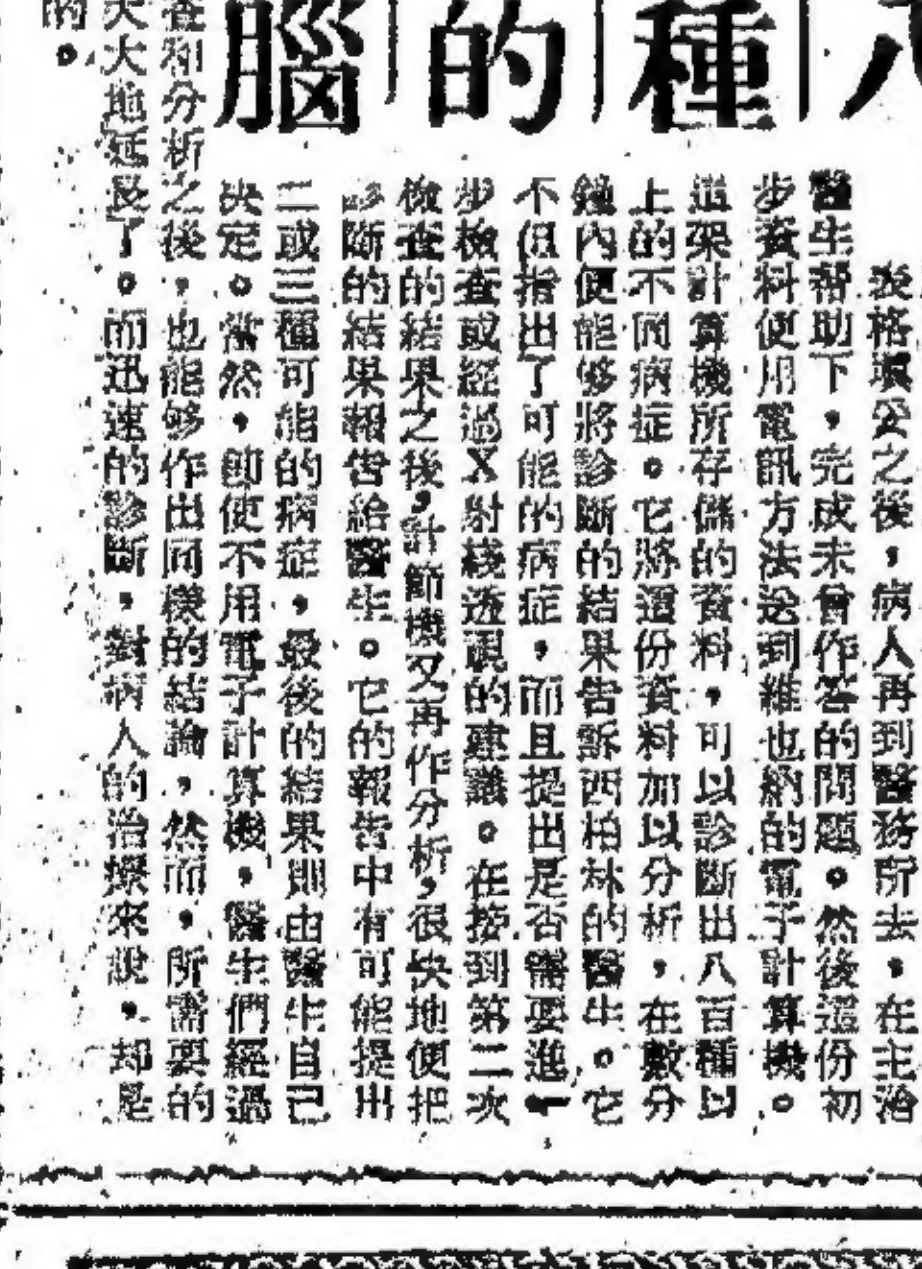 種的腦
表格填公之後，病人再到醫務所去，在主治
醫生幫助下，完成未曾作答的問題。然後這份初
步資料便用電訊方法送到維也納的電子計算機。
這架計算機所存儲的資料，可以診斷出八百種以
上的不同病症。它將這份資料加以分析，在數分
鐘內便能够將診斷的結果告訴西柏林的醫生。它
不但指出了可能的病症，而且提出是否需要進一
步檢查或經過X射綫透視的建議。在接到第二次
檢查的結果之後，計節機又再作分析，很快地便把
診斷的結果報告給醫生。它的報告中有可能提出
二或三種可能的病症，最後的結果則由醫生自己
決定。當然，卽使不用電子計算機，醫生們經過
查和分析之後，也能够作出同樣的結論，然而，所需要的
大大地延長了。而迅速的診斷，對病人的治療來說，却是
的。